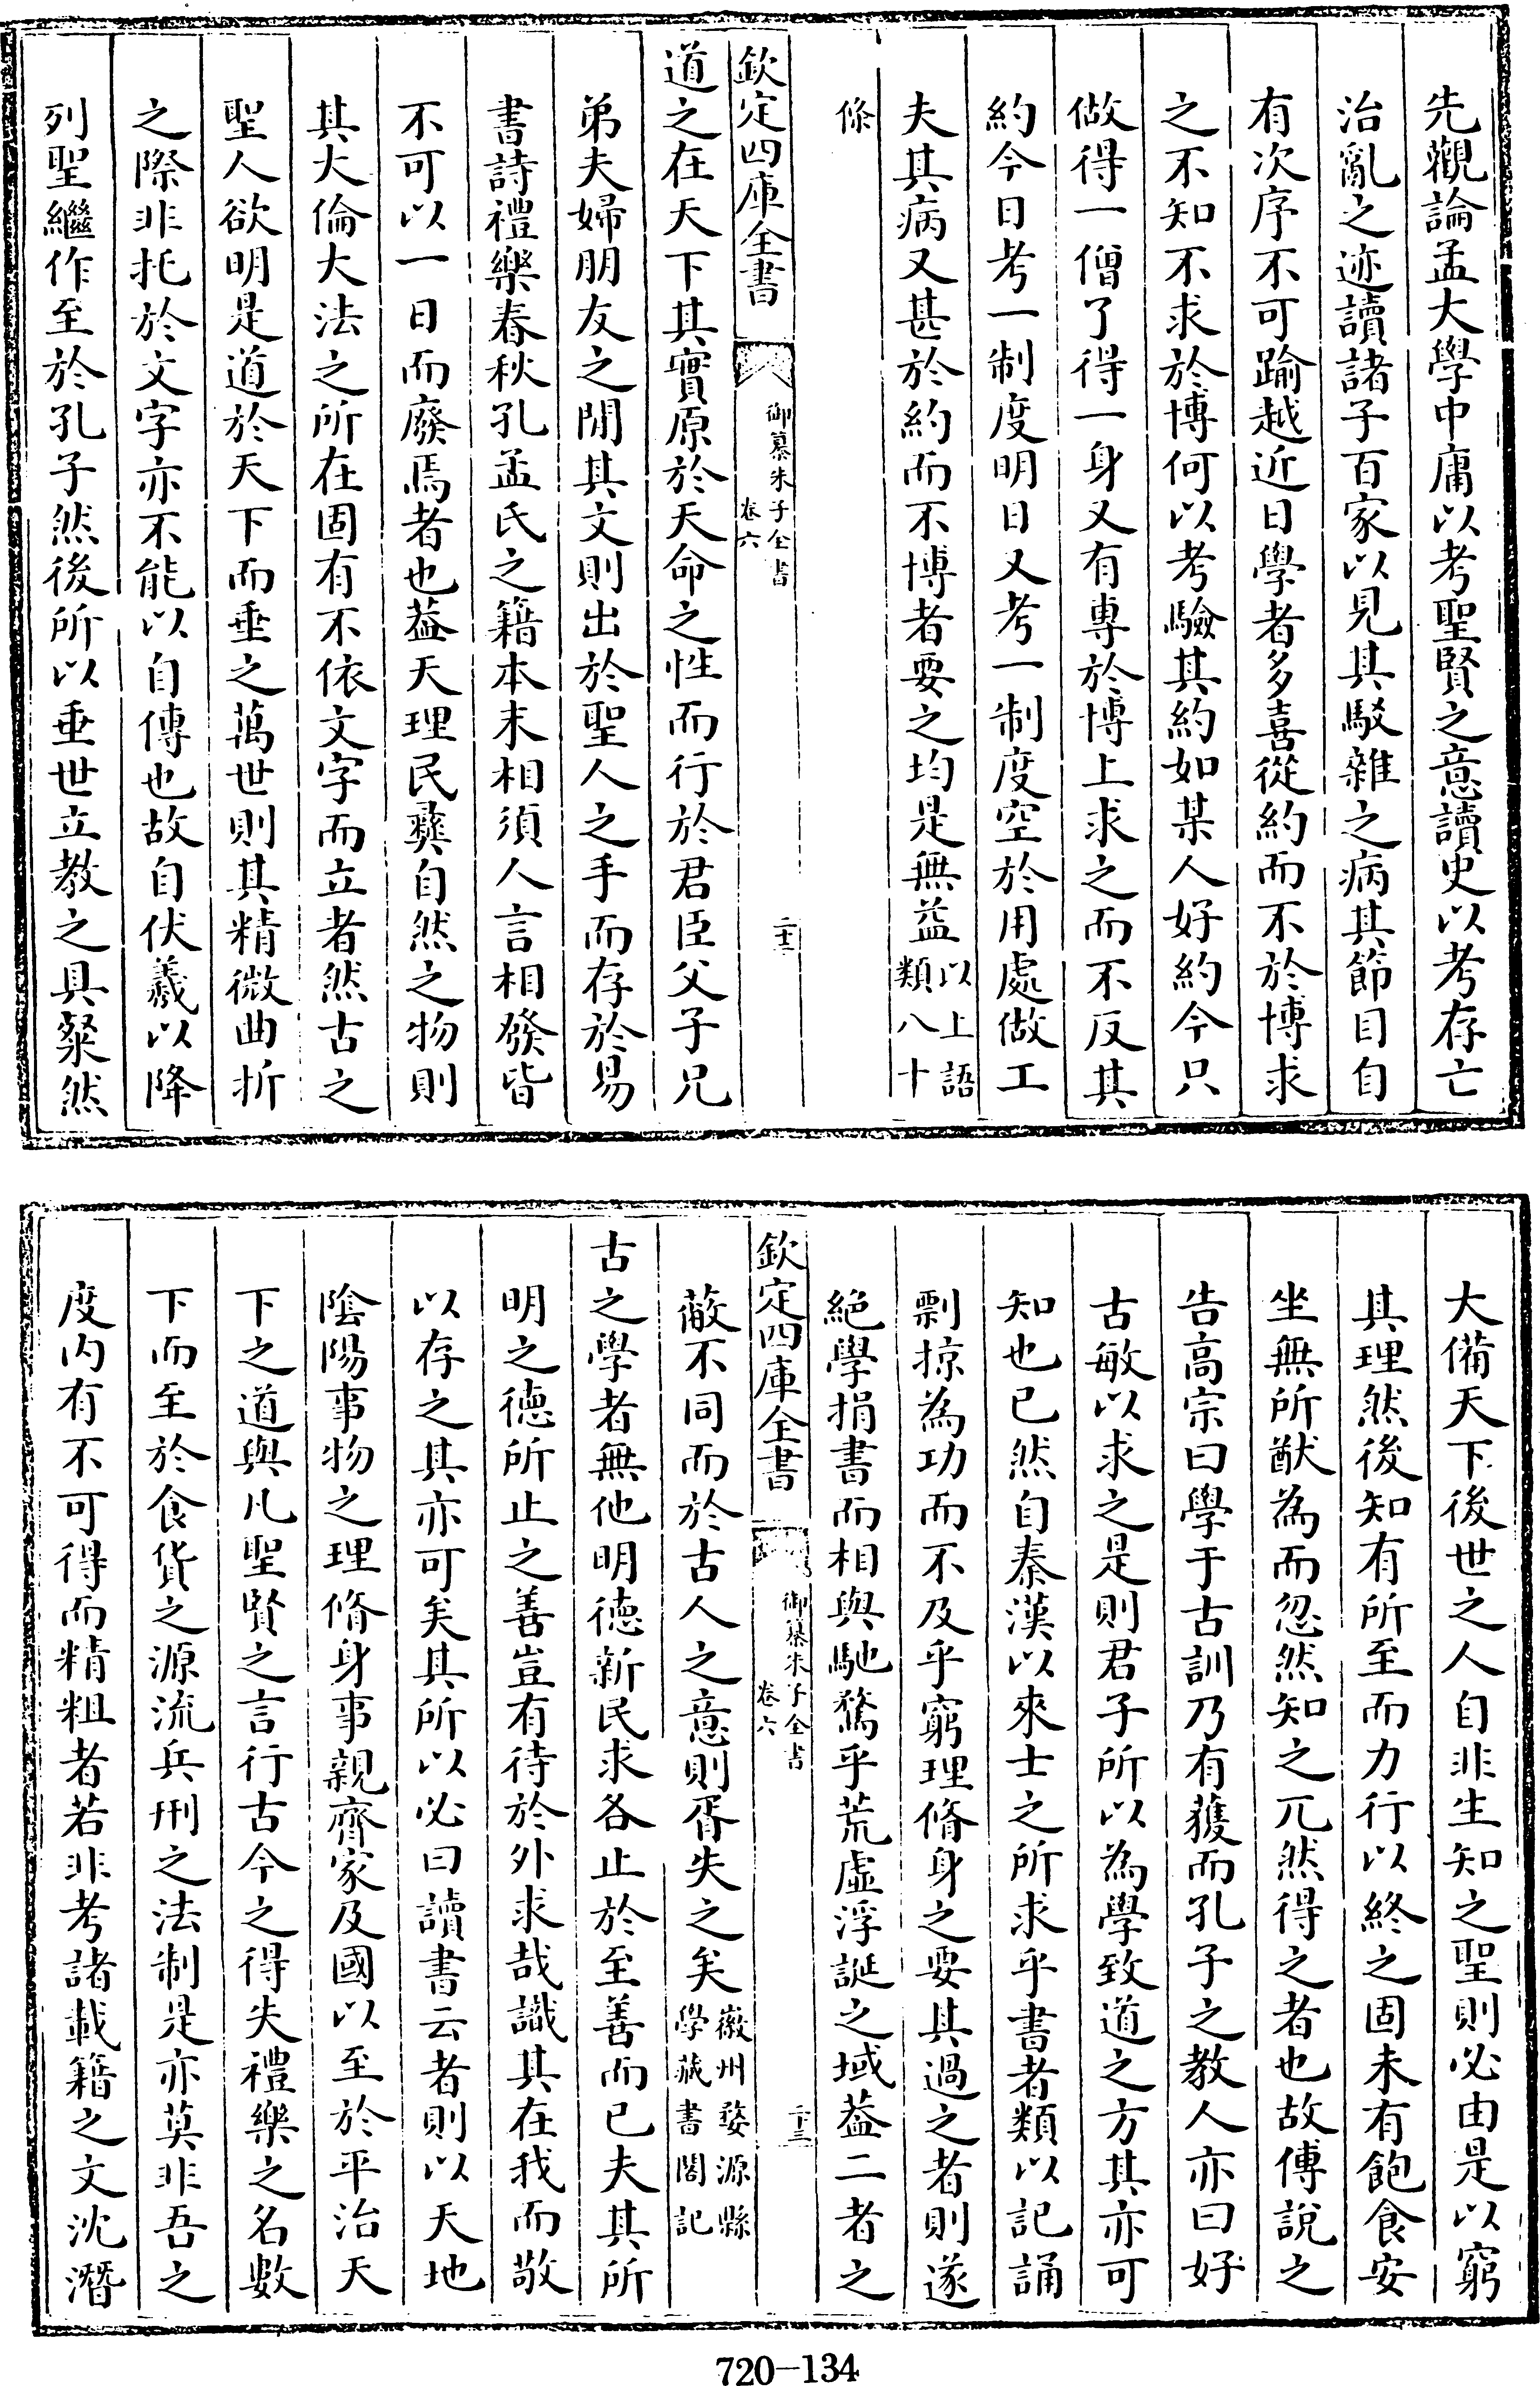 先觀論孟大學中庸以考聖賢之意讀史以考存亡
治亂之迹讀諸子百家以見其駁雜之病其節目自
有次序不可踰越近日學者多喜從約而不於博求
之不知不求於博何以考驗其約如某人好約今只
做得一僧了得一身又有專於博上求之而不反其
約今日考一制度明日又考一制度空於用處做工
夫其病又甚於約而不博者要之均是無益以上語類八十
條
欽定四庫全書
御纂朱子全書
卷六
二十二
道之在天下其實原於天命之性而行於君臣父子兄
弟夫婦朋友之閒其文則出於聖人之手而存於易
書詩禮樂春秋孔孟氏之籍本末相須人言相發皆
不可以一日而廢焉者也葢天理民彝自然之物則
其大倫大法之所在固有不依文字而立者然古之
聖人欲明是道於天下而垂之萬世則其精微曲折
之際非托於文字亦不能以自傳也故自伏羲以降
列聖繼作至於孔子然後所以垂世立教之具粲然
大備天下後世之人自非生知之聖則必由是以窮
其理然後知有所至而力行以終之固未有飽食安
坐無所猷為而忽然知之兀然得之者也故傅說之
告高宗曰學于古訓乃有獲而孔子之教人亦曰好
古敏以求之是則君子所以為學致道之方其亦可
知也已然自秦漢以來士之所求乎書者類以記誦
剽掠為功而不及乎窮理脩身之要其過之者則遂
絕學捐書而相與馳騖乎荒虛浮誕之域葢二者之
欽定四庫全書
御纂朱子全書
卷六
二十三
蔽不同而於古人之意則胥失之矣徽州婺源縣學藏書閣記
古之學者無他明徳新民求各止於至善而已夫其所
明之徳所止之善豈有待於外求哉識其在我而敬
以存之其亦可矣其所以必曰讀書云者則以天地
陰陽事物之理脩身事親齊家及國以至於平治天
下之道與凡聖賢之言行古今之得失禮樂之名數
下而至於食貨之源流兵刑之法制是亦莫非吾之
度内有不可得而精粗者若非考諸載籍之文沈潛
720-134